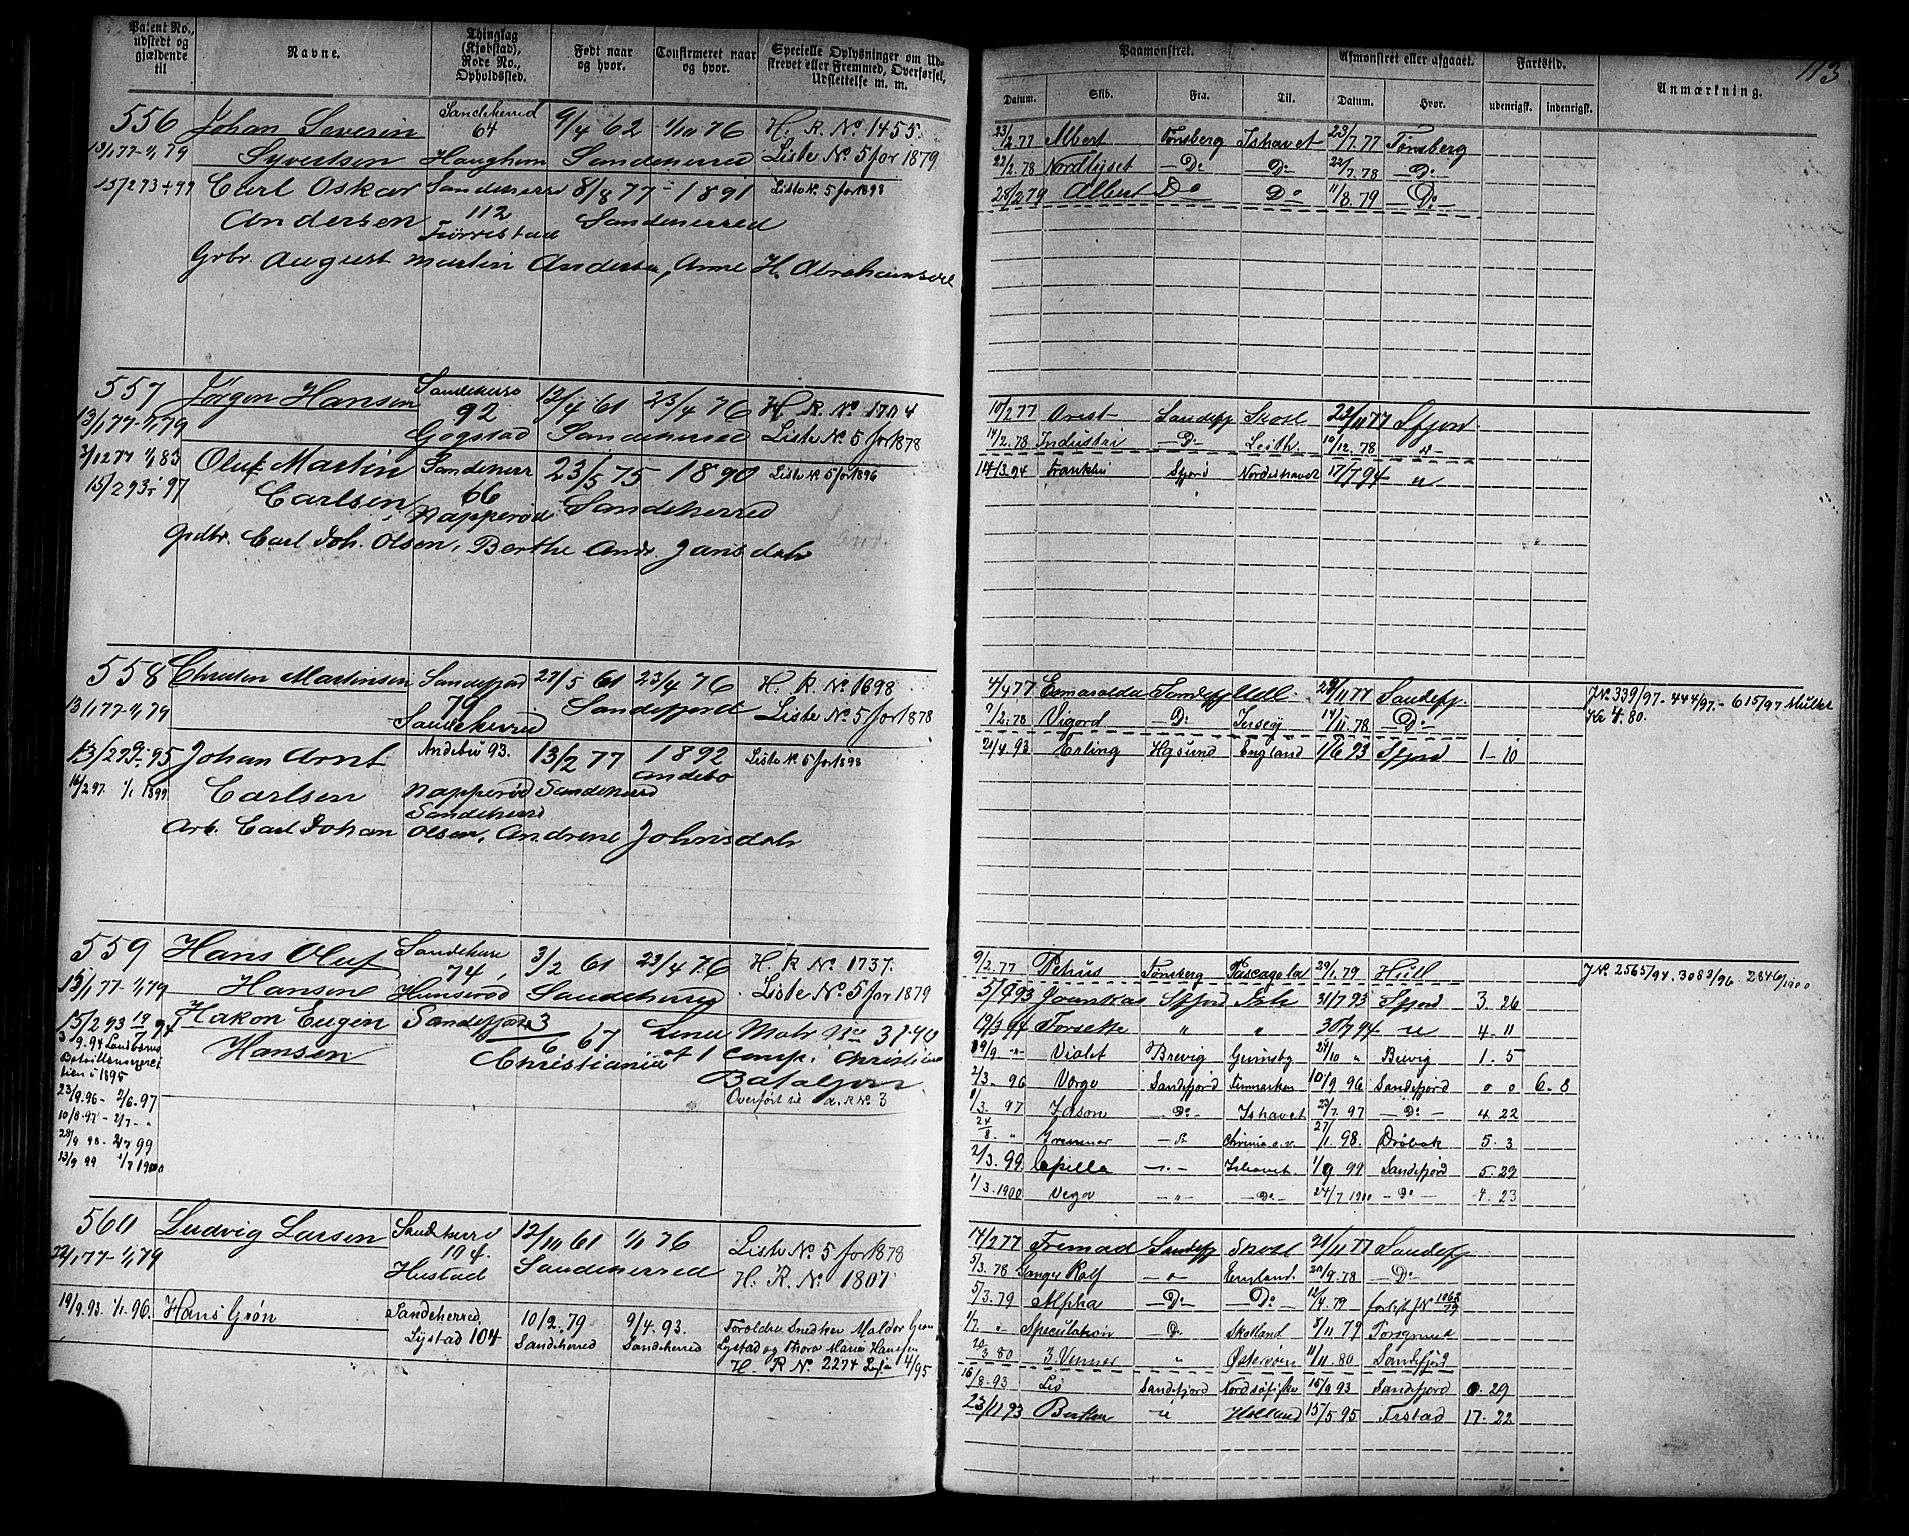 Patent No., udstedt og gjældende til
Navne.
Thinglag (Kjøbstad), Rode No., Opholdssted.
Født naar og hvor.
Confirmeret naar og hvor.
Specielle Oplysninger om Udskrevet eller Fremmed, Overførsel, Udslettelse m. m.
Paamønstret.
Afmønstret eller afgaaet.
Fartstid.
Anmærkning.
113
Datum. Skib. Fra. Til. Datum. Hvor. udenrigsk. indenrigsk.
556 Johan Severin Sandeherred 64 9/4 62 1/10 76 H. R. No 1455.
13/1 77 - 1/1 79 Syvertsen Haughem Sandeherred Liste No 5 for 1879
15/2 93 + 97 Carl Oskar Sandeherr 8/4 77 - 1891 Liste No. 5 for 1898
Andersen 112 Sandeherred
Grbr. August Martin Andersen, Anne H. Abrahamsdl
23/2 77 Albert Tønsberg Ishavet 23/7 77 Tønsberg
22/2. 78 Nordlyset — Do — Do 22/7. 78 — Do —
28/2 79 Albert Do Do 11/8. 79 — Do —
557 Jørgen Hansen Sandeherred 92 12/4 61 23/4 76 H. R. No 1704
13/1 77 - 1/1 79 Gogstad Sandeherred Liste No 5 for 1878
1/1 83 Oluf Martin Sandeherr 23/5 75 1890 Liste No 5 for 1896
15/2 93 - 97 Carlsen 66 Napperød Sandeherred
Grdbr. Carl Joh. Olsen, Berthe Andr. Jansdatr
10/2 77 Sandefj Skotl 22/11 77 Sfjord
14/2. 78 Industri — Do — Leith. 19/12. 78
14/3. 94 Franklin Sfjord Nordishavet 17/7 94
558 Christen Martinsen Sandefjord 79 27/5 61 23/4 76 H. R. No 1698
13/1 77 - 1/1 79 Sandeherred Sandefjord Liste No 5 for 1878
13/2 93 - 95 Johan Arnt Andebu 93. 13/2 77 1892 Andebo Liste No. 5 for 1898
16/2 97. 1/1 1899 Carlsen Napperød Sandeherred
Sandeherred
Arb. Carl Johan Olsen, Andrine Johnsdatr
4/4 77 Esmaralda Sandefj 28/11 77 Sandefj
9/2. 78 Vigord — Do Jersey 14/11. 78 Do
21/4. 93 Erling Hgsund England 1/6 93 Sfjord 1 - 10
J No 339/97 - 444/97. - 615/97 Mulkt
Kr 4.80.
559 Hans Oluf Sandeherr 74, 3/2 61 23/4 76 H. R No 1737.
13/1 77 - 1/1 79 Hansen Hunsrød Sandeherred Liste No 5 for 1879
15/2 93 Hakon Eugen Sandefjord 3/6 67
Hansen Christiania
Overført til a. R No 3
i 1895
23/9. 96 - 2/6. 97
10/8 97 - 2/7 - "
28/9 98 - 99
13/9 99 1/7 1900
9/2. 77 Petrus Tønsberg Pascagola 29/1. 79 Hull
93 Sfjord 31/7. 93 Sfjord 3. 26
19/3 94 Forsette " " 30/7 94 4. 11
Violet Brevig Grimsby 24/10 " Brevig 1. 5
2/3. 96 Varge Sandefjord Finmarken 10/9 96 Sandefjord 0 0 6. 8
1/3. 97 Jason — Do — Ishavet 23/7. 97 — Do — 4. 22
24/8. " 27/1. 98. Drøbak 5. 3
2/3. 99 Capella — " — Ishavet. 1/9 99 Sandefjord 5. 29
1/3. 1900 Vega — " — — Do — 24/7 1900 — Do — 4. 23
J No 2565/94. 3083/96 2846/1900
560 Ludvig Larsen Sandeherred 104. 12/10 61 1/11 76 Liste No 5 for 1878
22/1 77 - 1/1 79 Hustad Sandeherred H. R. No 1801
19/9. 93. 1/1. 96. Hans Grøn Sandeherred, 10/2. 79 9/4. 93. Foreldre Snedker Maldor Grøn
Lystad 104 Sandeherred Sandeherred Lystad og Thora Maria Hansen
H. R No 2274 4/95
14/2 77 Fremad Sandefj Skotl 21/11 77 Sandefj
5/3. 78 Ganger Rolf England. 20/9. 78 — Do —
5/3. 79 Alpha — Do — Do 12/4. 79 forligt J. No 1062/79
4/7. " Speculation Do Skotland 8/11 79 Porsgrund
20/3 80 3 Venner " Østersøen 11/11. 80 Sandefjord
16/8. 93 Lio Sandefjord Nordsøfiske 15/9. 93 Sandefjord 0. 29
23/11 93 Holland 15/5 95 Frstad 17. 22